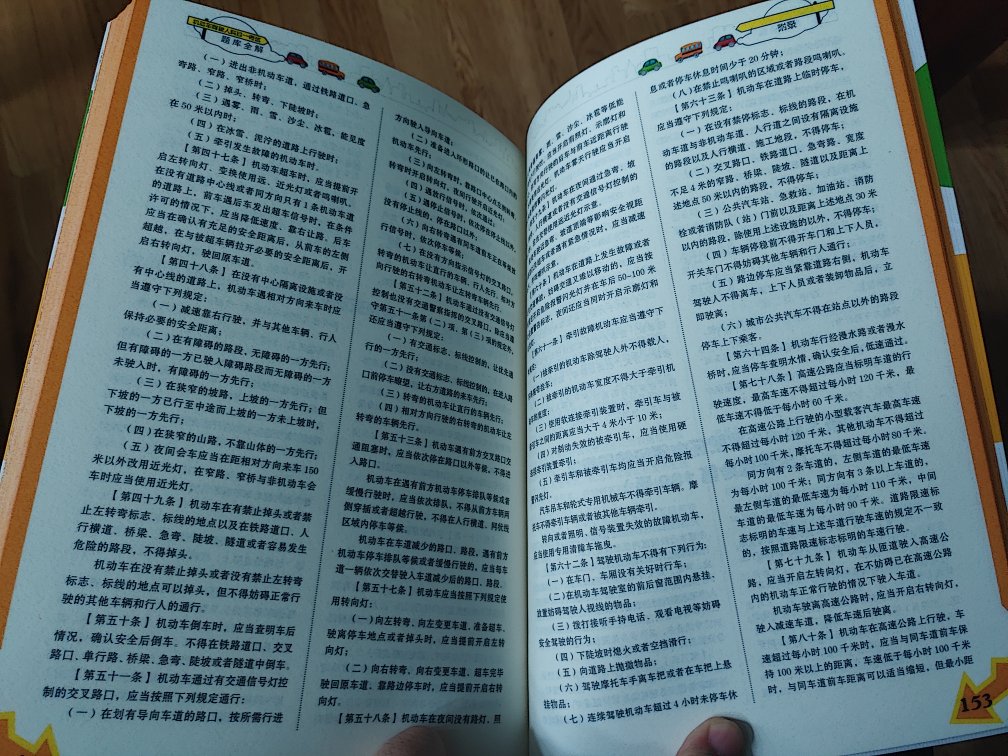 题库全解
（一）进出非机动车道，通过铁路道口、急
弯路、窄路、窄桥时；
（二）掉头、转弯、下陡坡时；
（三）遇雾、雨、雪、沙尘、冰雹，能见度
在 50 米以内时；
（四）在冰雪、泥泞的道路上行驶时；
（五）牵引发生故障的机动车时。
【第四十七条】机动车超车时，应当提前开
启左转向灯、变换使用远、近光灯或者鸣喇叭。
在没有道路中心线或者同方向只有 1 条机动车道
的道路上，前车遇后车发出超车信号时，在条件
许可的情况下，应当降低速度、靠右让路。后车
应当在确认有充足的安全距离后，从前车的左侧
超越，在与被超车辆拉开必要的安全距离后，开
启右转向灯，驶回原车道。
【第四十八条】在没有中心隔离设施或者没
有中心线的道路上，机动车遇相对方向来车时应
当遵守下列规定：
（一）减速靠右行驶，并与其他车辆、行人
保持必要的安全距离；
（二）在有障碍的路段，无障碍的一方先行；
但有障碍的一方已驶入障碍路段而无障碍的一方
未驶入时，有障碍的一方先行；
（三）在狭窄的坡路，上坡的一方先行；但
下坡的一方已行至中途而上坡的一方未上坡时，
下坡的一方先行；
（四）在狭窄的山路，不靠山体的一方先行；
（五）夜间会车应当在距相对方向来车 150
米以外改用近光灯，在窄路、窄桥与非机动车会
车时应当使用近光灯。
【第四十九条】机动车在有禁止掉头或者禁
止左转弯标志、标线的地点以及在铁路道口、人
行横道、桥梁、急弯、陡坡、隧道或者容易发生
危险的路段，不得掉头。
机动车在没有禁止掉头或者没有禁止左转弯
标志、标线的地点可以掉头，但不得妨碍正常行
驶的其他车辆和行人的通行。
【第五十条】机动车倒车时，应当查明车后
情况，确认安全后倒车。不得在铁路道口、交叉
路口、单行路、桥梁、急弯、陡坡或者隧道中倒车。
【第五十一条】机动车通过有交通信号灯控
制的交叉路口，应当按照下列规定通行：
（一）在划有导向车道的路口，按所需行进
方向驶入导向车道；
（二）准备进入环形路口的让已在路口内的
机动车先行；
（三）向左转弯时，靠路口中心点左侧转弯。
转弯时开启转向灯，夜间行驶开启近光灯；
（四）遇放行信号时，依次通过；
（五）遇停止信号时，依次停在停止线以外。
没有停止线的，停在路口以外；
（六）向右转弯遇有同车道前车正在等候放
行信号时，依次停车等候；
（七）在没有方向指示信号灯的交叉路口，
转弯的机动车让直行的车辆、行人先行。相对方
向行驶的右转弯机动车让左转弯车辆先行。
【第五十二条】机动车通过没有交通信号灯
控制也没有交通警察指挥的交叉路口，除应当遵
守第五十一条第（二）项、第（三）项的规定外，
还应当遵守下列规定：
（一）有交通标志、标线控制的，让优先通
行的一方先行；
（二）没有交通标志、标线控制的，在进入路
口前停车瞭望，让右方道路的来车先行；
（三）转弯的机动车让直行的车辆先行；
（四）相对方向行驶的右转弯的机动车让左
转弯的车辆先行。
【第五十三条】机动车遇有前方交叉路口交
通阻塞时，应当依次停在路口以外等候，不得进
入路口。
机动车在遇有前方机动车停车排队等候或者
缓慢行驶时，应当依次排队，不得从前方车辆两
侧穿插或者超越行驶，不得在人行横道、网状线
区域内停车等候。
机动车在车道减少的路口、路段，遇有前方
机动车停车排队等候或者缓慢行驶的，应当每车
道一辆依次交替驶入车道减少后的路口、路段。
【第五十七条】机动车应当按照下列规定使
用转向灯：
（一）向左转弯、向左变更车道、准备超车、
驶离停车地点或者掉头时，应当提前开启左转
向灯；
（二）向右转弯、向右变更车道、超车完毕
驶回原车道、靠路边停车时，应当提前开启右转
向灯。
【第五十八条】机动车在夜间没有路灯、照
附录
、雨、雪、沙尘、冰雹等低能
应当开启前照灯、示廓灯和
驶的后车与前车近距离行驶
光灯。机动车雾天行驶应当开启
机动车在夜间通过急弯、坡
、人行横道或者没有交通信号灯控制的
替使用远近光灯示意。
近急弯、坡道顶端等影响安全视距
或者遇有紧急情况时，应当减速
鸣喇叭示意。
十条】机动车在道路上发生故障或者
事故，妨碍交通又难以移动的，应当按
启危险报警闪光灯并在车后 50~100 米
警告标志，夜间还应当同时开启示廓灯和
【第六十一条】牵引故障机动车应当遵守下
（一）被牵引的机动车除驾驶人外不得载人，
不得拖带挂车；
（二）被牵引的机动车宽度不得大于牵引机
动车的宽度；
（三）使用软连接牵引装置时，牵引车与被
牵引车之间的距离应当大于 4 米小于 10 米；
（四）对制动失效的被牵引车，应当使用硬
连接牵引装置牵引；
（五）牵引车和被牵引车均应当开启危险报
警闪光灯。
汽车吊车和轮式专用机械车不得牵引车辆。摩
托车不得牵引车辆或者被其他车辆牵引。
转向或者照明、信号装置失效的故障机动车，
应当使用专用清障车拖曳。
【第六十二条】驾驶机动车不得有下列行为：
（一）在车门、车厢没有关好时行车；
（二）在机动车驾驶室的前后窗范围内悬挂、
放置妨碍驾驶人视线的物品；
（三）拨打接听手持电话、观看电视等妨碍
安全驾驶的行为；
（四）下陡坡时熄火或者空挡滑行；
（五）向道路上抛撒物品；
（六）驾驶摩托车手离车把或者在车把上悬
挂物品；
（七）连续驾驶机动车超过 4 小时未停车休
息或者停车休息时间少于 20 分钟；
（八）在禁止鸣喇叭的区域或者路段鸣喇叭。
【第六十三条】机动车在道路上临时停车，
应当遵守下列规定：
（一）在设有禁停标志、标线的路段，在机
动车道与非机动车道、人行道之间设有隔离设施
的路段以及人行横道、施工地段，不得停车；
（二）交叉路口、铁路道口、急弯路、宽度
不足 4 米的窄路、桥梁、陡坡、隧道以及距离上
述地点 50 米以内的路段，不得停车；
（三）公共汽车站、急救站、加油站、消防
栓或者消防队（站）门前以及距离上述地点 30 米
以内的路段，除使用上述设施的以外，不得停车；
（四）车辆停稳前不得开车门和上下人员，
开关车门不得妨碍其他车辆和行人通行；
（五）路边停车应当紧靠道路右侧，机动车
驾驶人不得离车，上下人员或者装卸物品后，立
即驶离；
（六）城市公共汽车不得在站点以外的路段
停车上下乘客。
【第六十四条】机动车行经漫水路或者漫水
桥时，应当停车查明水情，确认安全后，低速通过。
【第七十八条】高速公路应当标明车道的行
驶速度，最高车速不得超过每小时 120 千米，最
低车速不得低于每小时 60 千米。
在高速公路上行驶的小型载客汽车最高车速
不得超过每小时 120 千米，其他机动车不得超过
每小时 100 千米，摩托车不得超过每小时 80 千米。
同方向有 2 条车道的，左侧车道的最低车速
为每小时 100 千米；同方向有 3 条以上车道的，
最左侧车道的最低车速为每小时 110 千米，中间
车道的最低车速为每小时 90 千米。道路限速标
志标明的车速与上述车道行驶车速的规定不一致
的，按照道路限速标志标明的车速行驶。
【第七十九条】机动车从匝道驶入高速公
路，应当开启左转向灯，在不妨碍已在高速公路
内的机动车正常行驶的情况下驶入车道。
机动车驶离高速公路时，应当开启右转向灯，
驶入减速车道，降低车速后驶离。
【第八十条】机动车在高速公路上行驶，车
速超过每小时 100 千米时，应当与同车道前车保
持 100 米以上的距离，车速低于每小时 100 千米
时，与同车道前车距离可以适当缩短，但最小距
153